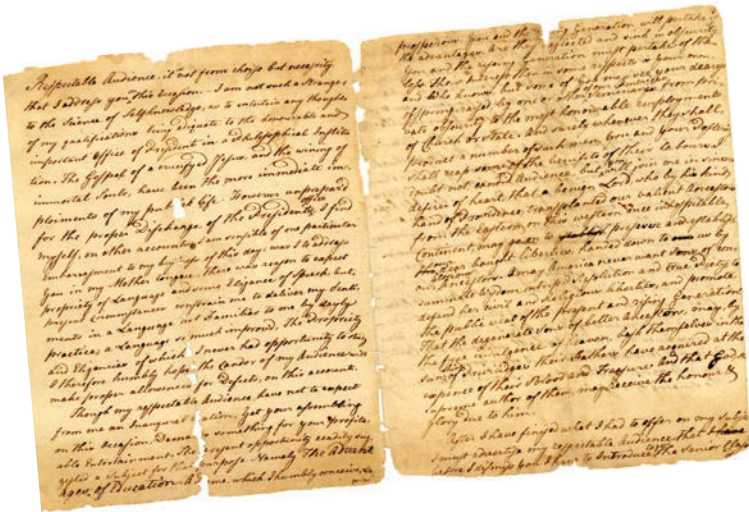 Respectable Audience, it not from choise but necessity
that I address you this Occasion. I am not such a Stranger
to the Science of Selfknowledge, as to entertain any thoughts
of my qualifications being adiquate to the honourable and
important Office of President in a Philosophical Institu
tion. The Gospel of a crucifyed Jesus, and the wining of
immortal Souls, have been the more immediate im
ployments of my publick life. However unprepard
for the proper Discharge of the Presidents office I find
myself, on other accounts, I am sensible of one particular
Embarrasment to my business of this day; was I to address
you in my Mother tongue, there was reason to expect
propriety of Language and some Eligance of Speech but,
present Circumstances constrain me to deliver my Senti
ments in a Language not Familiar to me by dayly
practice; a Language so much improvd. The Propriety
and Eligancies of which I never had opportunity to study
I therefore humbly hope the Candor of my Audience will
make proper allowances for Defects, on this account.
Though my respectable Audience have not to expect
from me an Inaugural Oration, Yet your assembling
on this Occasion, Demands something for your Profita
able Entertainment. The present opportunity readily sug
gested a Subject for that purpose. Namely The Advant
ages of Education. A which I humbly conceive,
prosperous. you and the Generation will pertake
the advantages. Are they neglected and sink in obscurity
You and the riseing Generation must pertake of the
loss. Their interest then in some respects is your own
and who knows but some of you may see your dearest
offspring raised by one or other of our Seminaries from pri
vate obscurity to the most honourable employments
of Church or State. And surely wherever they shall
produce a number of such men, you and your Posterity
shall reap some of the benefits of their labours. I
doubt not candid Audience, but you join me in sincere
desires of heart, that a benign Lord who by his kind
hand of Providence, transplanted our valiant Ancestors
from the Eastern, on this western once inhospitable,
Continent, may please to preserve and establish
Dear bought liberties, handed down to us by
our Ancestors. & may America never want Sons, of con
summate Wisdom, intrepid Resolution and true Piety to
defend her civil and Religious liberties, and promote
the public weal of the present and rising Generation.
That the degenerate Sons of better Ancestors, may, by
the free indulgence of heaven, bask themselves in the
Sun of those Priviledges their Fathers have acquired at the
expence of their Blood and Treasure And that God a
supreme author of them, may receive the honour &
glory due to him.
After I have finised what I had to offer on my Subject
I must advertise my respectable Audience that
before I dismiss you I have to Introduce the Senior Class